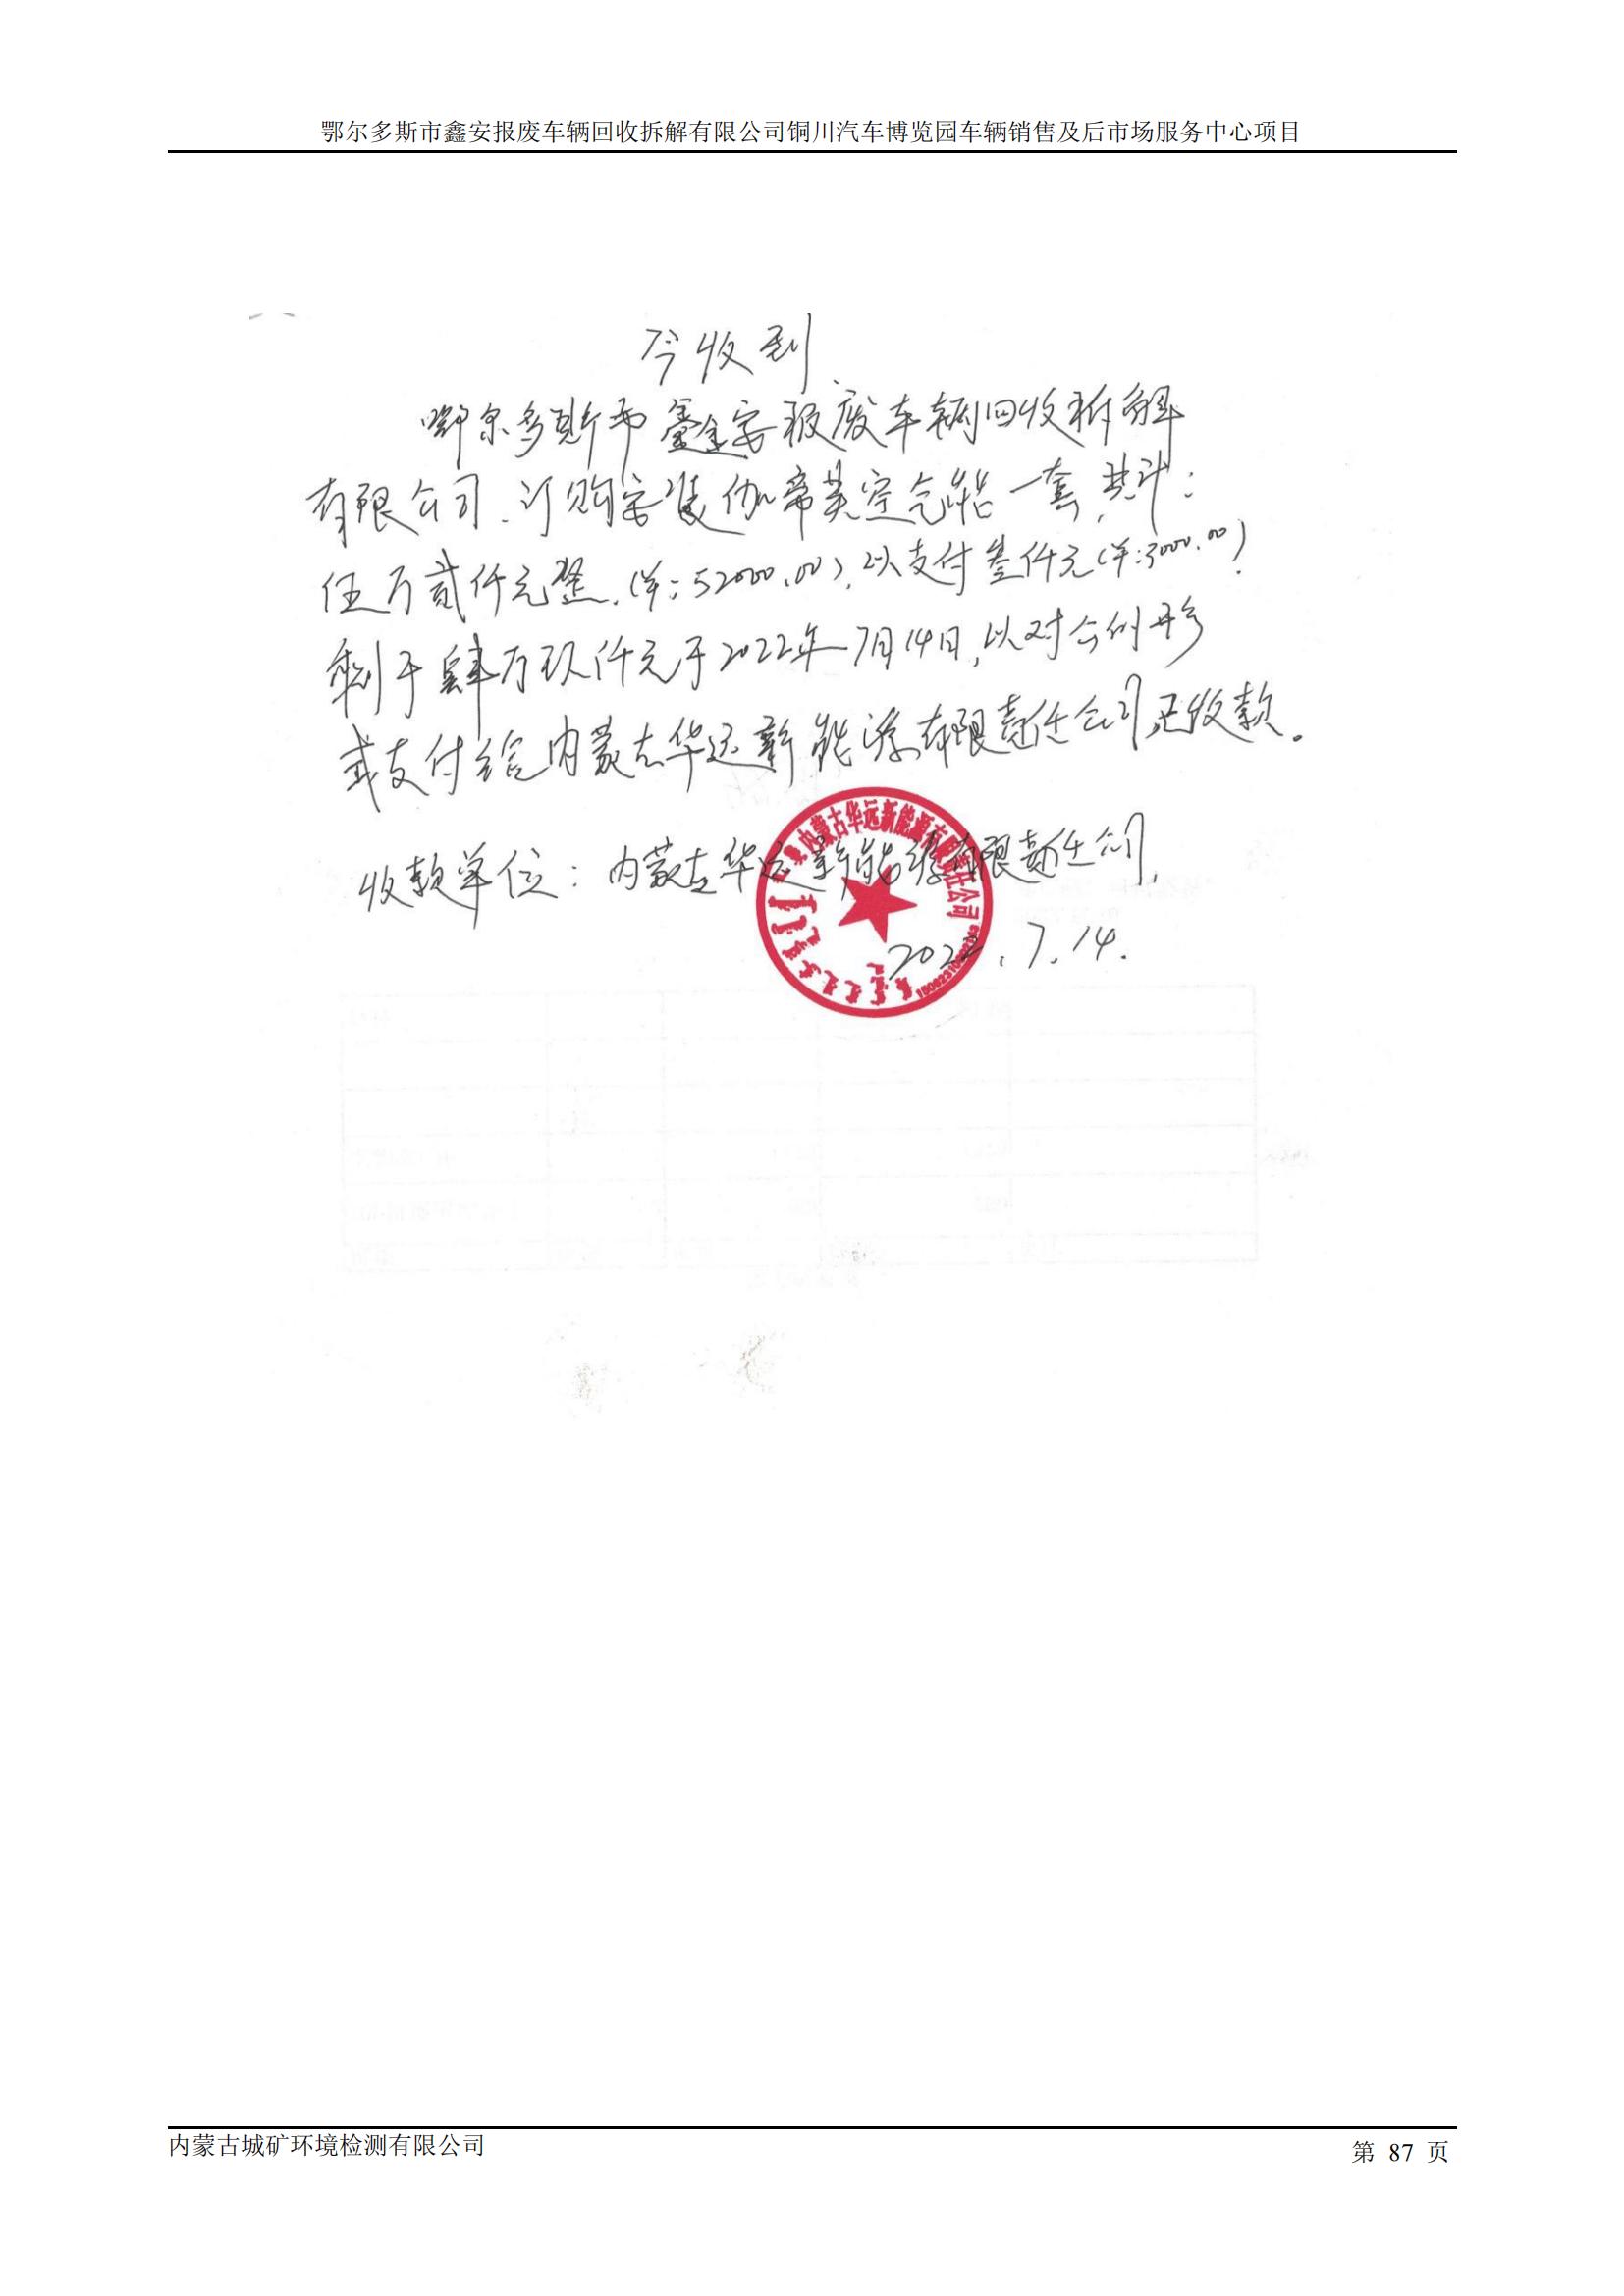 鄂尔多斯市鑫安报废车辆回收拆解有限公司铜川汽车博览园车辆销售及后市场服务中心项目
今收到
鄂尔多斯市鑫安报废车辆回收拆解
有限公司.订购安装伽帝芙空气能一套,共计:
伍万贰仟元整.(¥:52000.00),以支付叁仟元(¥:3000.00)
剩于肆万玖仟元于2022年7月14日,以对公的形
式支付给内蒙古华远新能源有限责任公司已收款。
收款单位:内蒙古华远新能源有限责任公司.
内蒙古华远新能源有限责任公司
2022.7.14.
内蒙古城矿环境检测有限公司
第 87 页